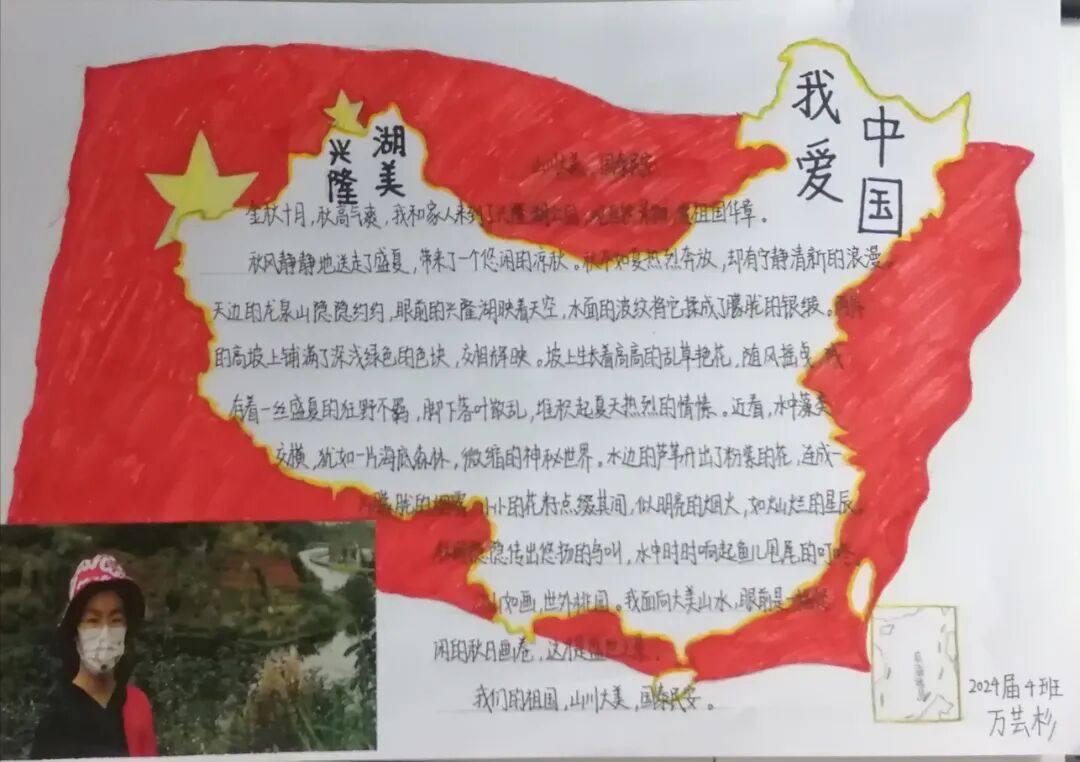 我爱
中国
兴隆
湖美
山川大美，国泰民安
金秋十月，秋高气爽，我和家人来到了兴隆湖公园，祖国华章。
秋风静静地送走了盛夏，带来了一个悠闲的凉秋。秋不如夏热烈奔放，却有宁静清新的浪漫。
天边的龙泉山隐隐约约，眼前的兴隆湖映着天空，水面的波纹将它揉成了朦胧的银缎。
的高坡上铺满了深浅绿色的色块，交相辉映。坡上生长着高高的乱草艳花，随风摇曳，
存着一丝盛夏的狂野不羁，脚下落叶散乱，堆积起夏天热烈的情愫。近看，水中藻类
交横，犹如一片海底森林，微缩的神秘世界。水边的芦苇开出了粉紫的花，连成一
朦胧的烟雾，小小的花籽点缀其间，似明亮的烟火，如灿烂的星辰。
隐隐传出悠扬的鸟叫，水中时时响起鱼儿甩尾的叮咚。
山如画，世外桃园。我面向大美山水，眼前是
闲的秋日画卷，这才是盛世之景。
我们的祖国，山川大美，国泰民安。
2024届4班
万芸杉